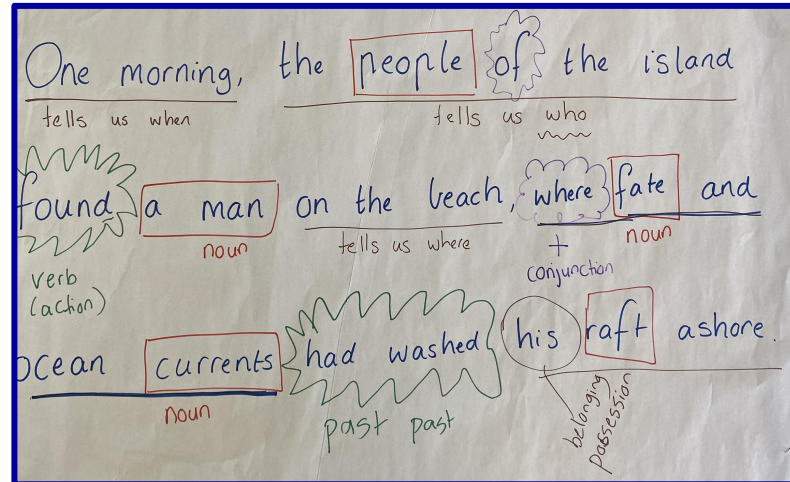 One morning, the people of the island
tells us when tells us who
found a man on the beach, where fate and
noun tells us where + noun
verb conjunction
(action)
ocean currents had washed his raft ashore.
noun past past belonging
possession